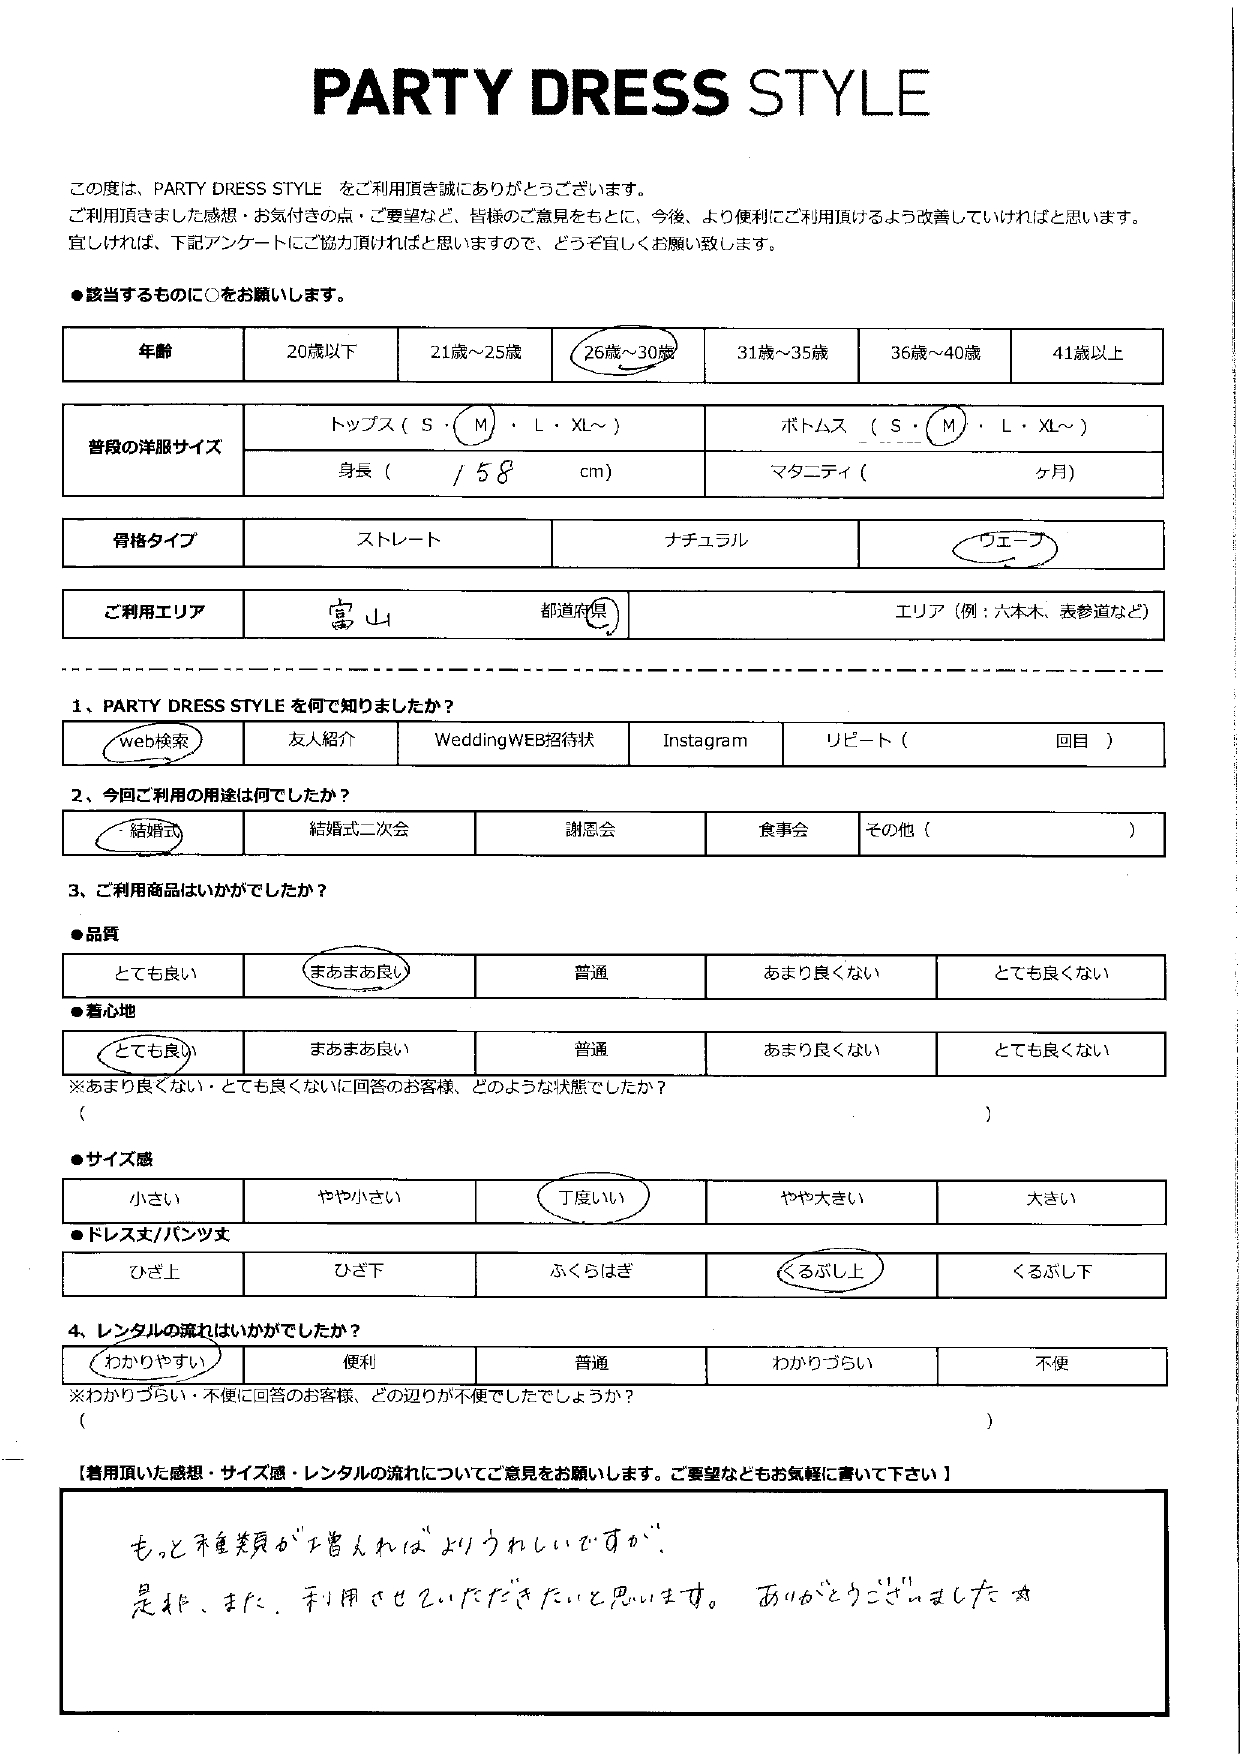 PARTY DRESS STYLE
この度は、PARTY DRESS STYLE をご利用頂き誠にありがとうございます。
ご利用頂きました感想・お気付きの点・ご要望など、皆様のご意見をもとに、今後、より便利にご利用頂けるよう改善していければと思います。
宜しければ、下記アンケートにご協力頂ければと思いますので、どうぞ宜しくお願い致します。
●該当するものに○をお願いします。
年齢 20歳以下 21歳～25歳 26歳～30歳 31歳～35歳 36歳～40歳 41歳以上
普段の洋服サイズ トップス ( S ・ M ・ L ・ XL～ ) ボトムス ( S ・ M ・ L ・ XL～ )
身長 ( 158 cm) マタニティ ( ヶ月)
骨格タイプ ストレート ナチュラル ウェーブ
ご利用エリア 富山 都道府県 エリア（例：六本木、表参道など）
1、PARTY DRESS STYLE を何で知りましたか？
web検索 友人紹介 WeddingWEB招待状 Instagram リピート ( 回目 )
2、今回ご利用の用途は何でしたか？
結婚式 結婚式二次会 謝恩会 食事会 その他 ( )
3、ご利用商品はいかがでしたか？
●品質
とても良い まあまあ良い 普通 あまり良くない とても良くない
●着心地
とても良い まあまあ良い 普通 あまり良くない とても良くない
※あまり良くない・とても良くないに回答のお客様、どのような状態でしたか？
( )
●サイズ感
小さい やや小さい 丁度いい やや大きい 大きい
●ドレス丈/パンツ丈
ひざ上 ひざ下 ふくらはぎ くるぶし上 くるぶし下
4、レンタルの流れはいかがでしたか？
わかりやすい 便利 普通 わかりづらい 不便
※わかりづらい・不便に回答のお客様、どの辺りが不便でしたでしょうか？
( )
【着用頂いた感想・サイズ感・レンタルの流れについてご意見をお願いします。ご要望などもお気軽に書いて下さい】
もっと種類が増えればよりうれしいですが、
是非、また、利用させていただきたいと思います。 ありがとうございました☆